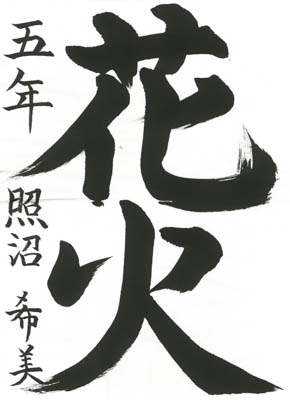 花火
五年 照沼 希美